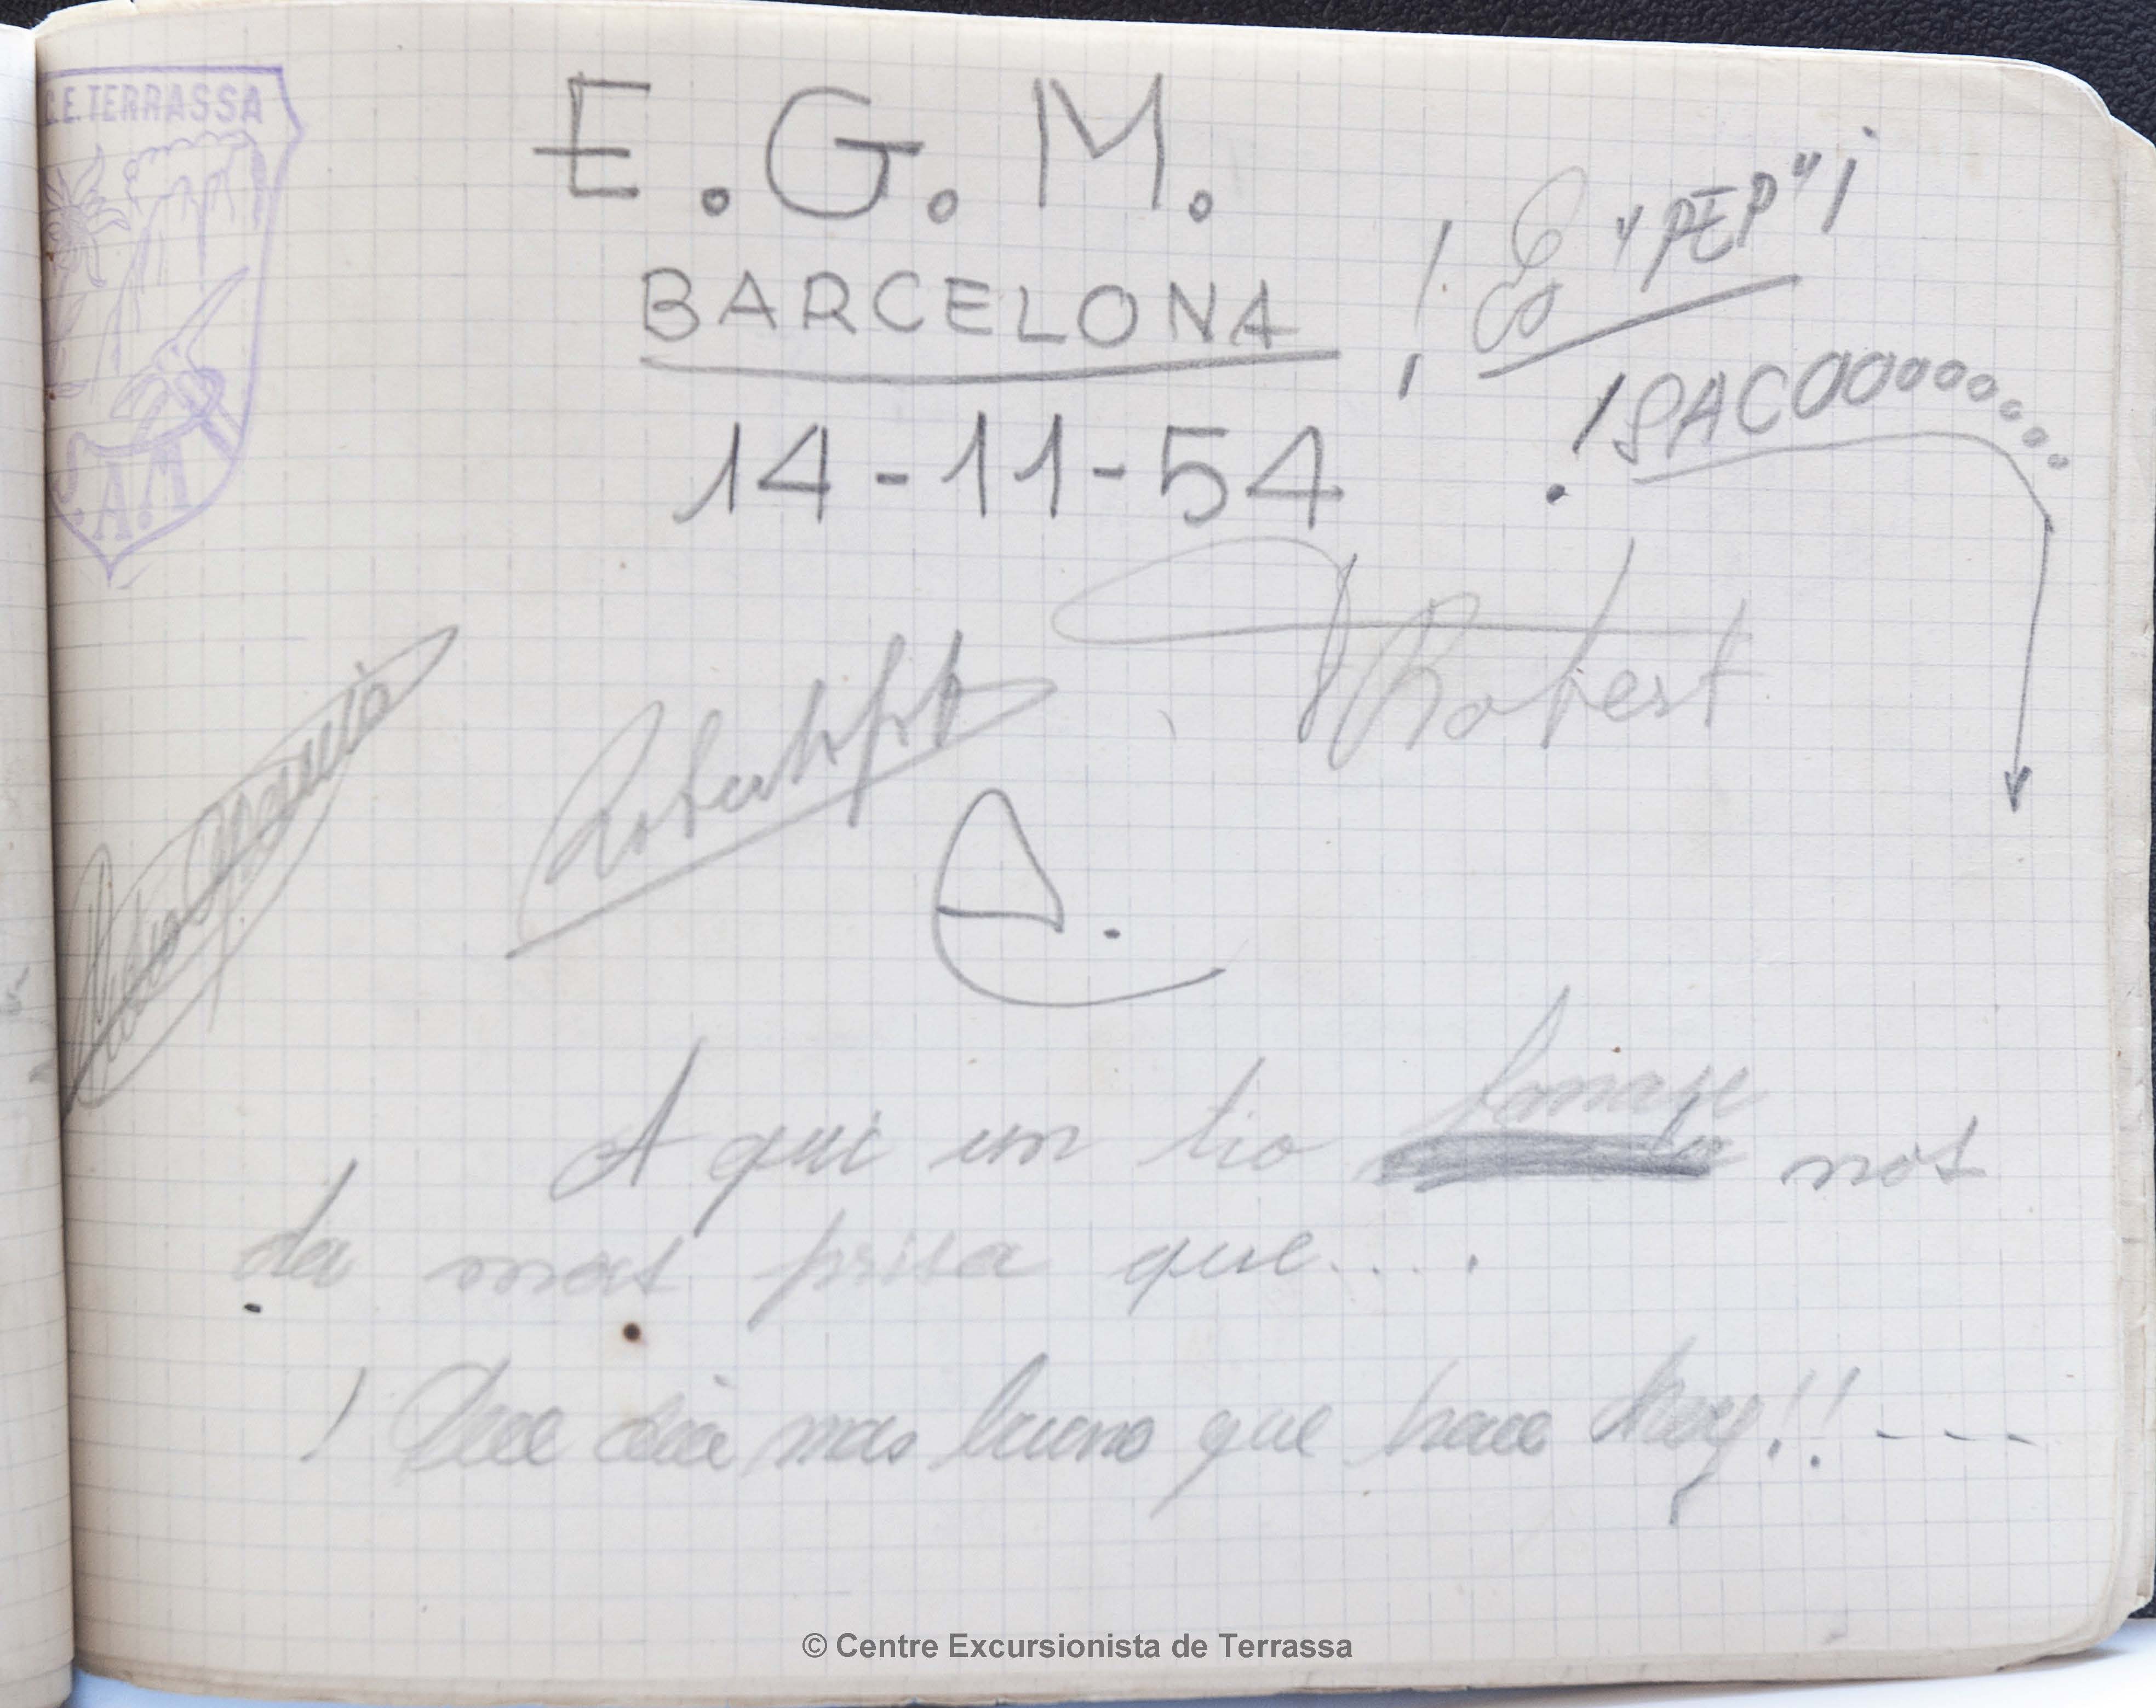 C.E. TERRASSA
E.G.M.
BARCELONA
14-11-54
! Es "PEP" ¡
! SACOOOOOOOOOO
Robert
A qui un tio nos
da mas prisa que....
! Que dia mas bueno que hace hoy!! - - - -
© Centre Excursionista de Terrassa